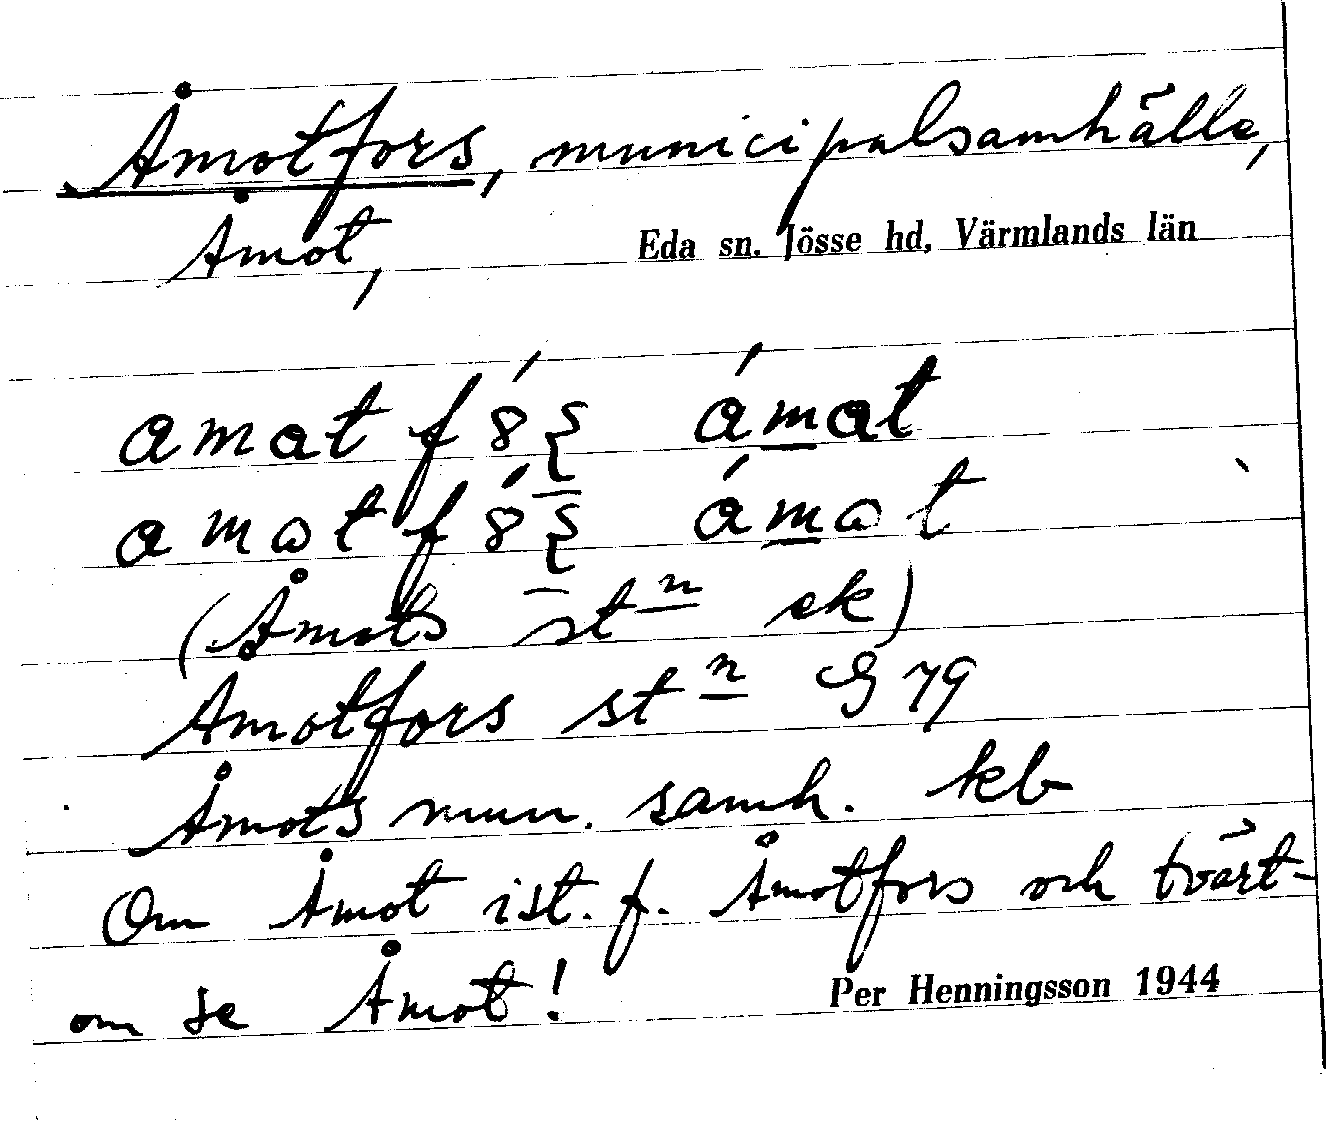 Åmotfors, municipalsamhälle,
Åmot,
Eda sn. Jösse hd, Värmlands län
amat f ámat
amɷt f ámɷt
(Åmots stn ek)
Åmotfors stn G 79
Åmots mun. samh. kb
Om Åmot ist. f. Åmotfors och tvärt-
om se Åmot!
Per Henningsson 1944